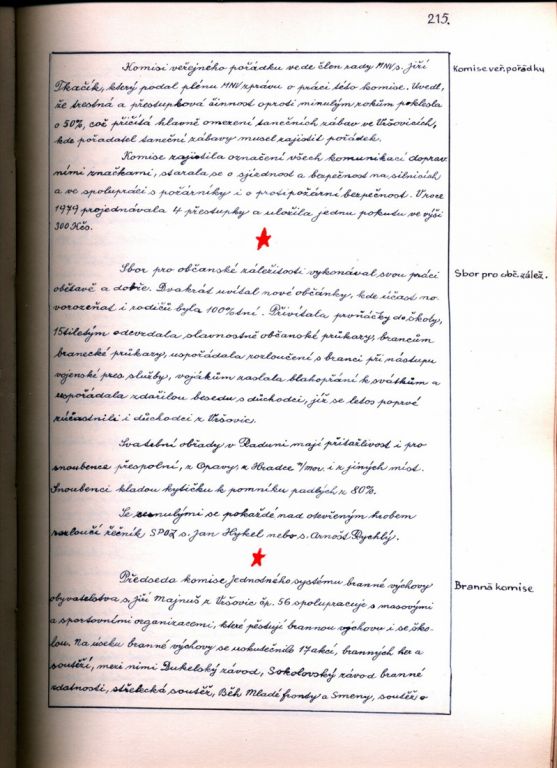 215.
Komisi veřejného pořádku vede člen rady MNV s. Jiří
Tkačík, který podal plénu MNV zprávu o práci této komise. Uvedl,
že trestná a přestupková činnost oproti minulým rokům poklesla
o 50%, což přičítá hlavně omezení tanečních zábav ve Vršovicích,
kde pořadatel taneční zábavy musel zajistit pořádek.
Komise zajistila označení všech komunikací doprav
ními značkami, starala se o sjízdnost a bezpečnost na silnicích
a ve spolupráci s požárníky i o protipožární bezpečnost. V roce
1979 projednávala 4 přestupky a uložila jednu pokutu ve výši
300 Kčs.
Komise veř. pořádku
Sbor pro občanské záležitosti vykonával svou práci
obětavě a dobře. Dvakrát uvítal nové občánky, kde účast no
vorozeňat i rodičů byla 100%tní. Přivítala prvňáčky do školy,
15tiletým odevzdala slavnostně občanské průkazy, brancům
branecké průkazy, uspořádala rozloučení s branci při nástupu
vojenské pres. služby, vojákům zaslala blahopřání k svátkům a
uspořádala zdařilou besedu s důchodci, jíž se letos poprvé
zúčastnili i důchodci z Vršovic.
Svatební obřady v Raduni mají přitažlivost i pro
snoubence přespolní, z Opavy, z Hradce n/Mor. i z jiných míst.
Snoubenci kladou kytičku k pomníku padlých z 80%.
Se zesnulými se pokaždé nad otevřeným hrobem
rozloučí řečník SPOZ s. Jan Hykel nebo s. Arnošt Rychlý.
Sbor pro obč. zálež.
Předseda komise Jednotného systému branné výchovy
obyvatelstva s. Jiří Majnuš z Vršovic čp. 56 spolupracuje s masovými
a sportovními organizacemi, které pěstují brannou výchovu i se ško-
lou. Na úseku branné výchovy se uskutečnilo 17 akcí, branných her a
soutěží, mezi nimi Dukelský závod, Sokolovský závod branné
zdatnosti, střelecká soutěž, Běh Mladé fronty a Smeny, soutěž o
Branná komise